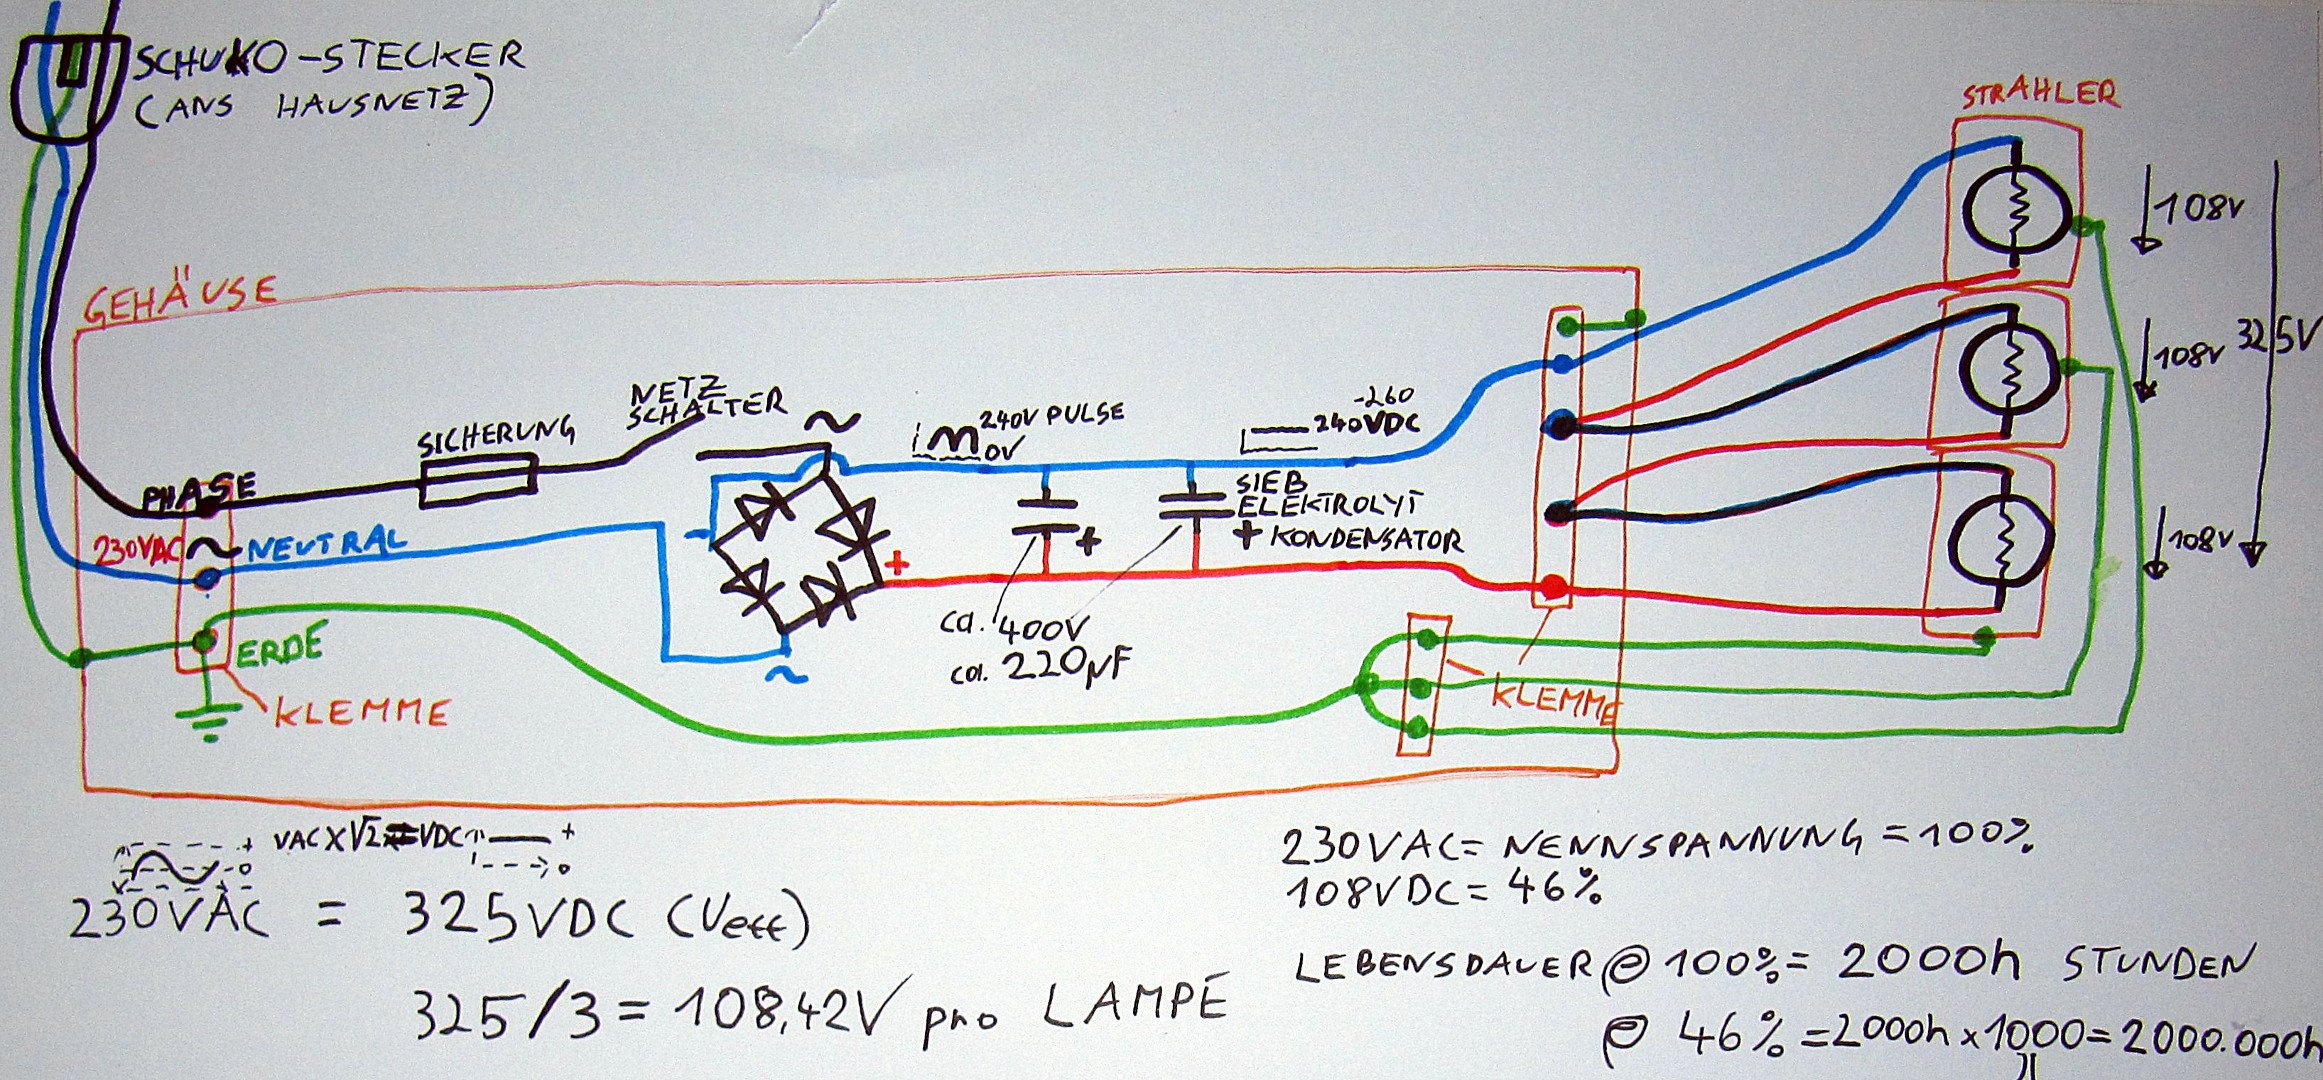 SCHUKO-STECKER
(ANS HAUSNETZ)
STRAHLER
108V
GEHÄUSE
108V
325V
NETZ
SCHALTER
~
240V PULSE
0V
-260
240VDC
SICHERUNG
PHASE
SIEB
ELEKTROLYT
+ KONDENSATOR
230VAC ~ NEUTRAL
-
+
+
108V
ERDE
ca. 400V
ca. 220µF
~
KLEMME
KLEMME
VAC X √2 = VDC
+
0
+
0
230VAC = 325VDC (Ueff)
325/3 = 108,42V pro LAMPE
230VAC = NENNSPANNUNG = 100%
108VDC = 46%
LEBENSDAUER @ 100% = 2000h STUNDEN
@ 46% = 2000h x 1000 = 2000.000h